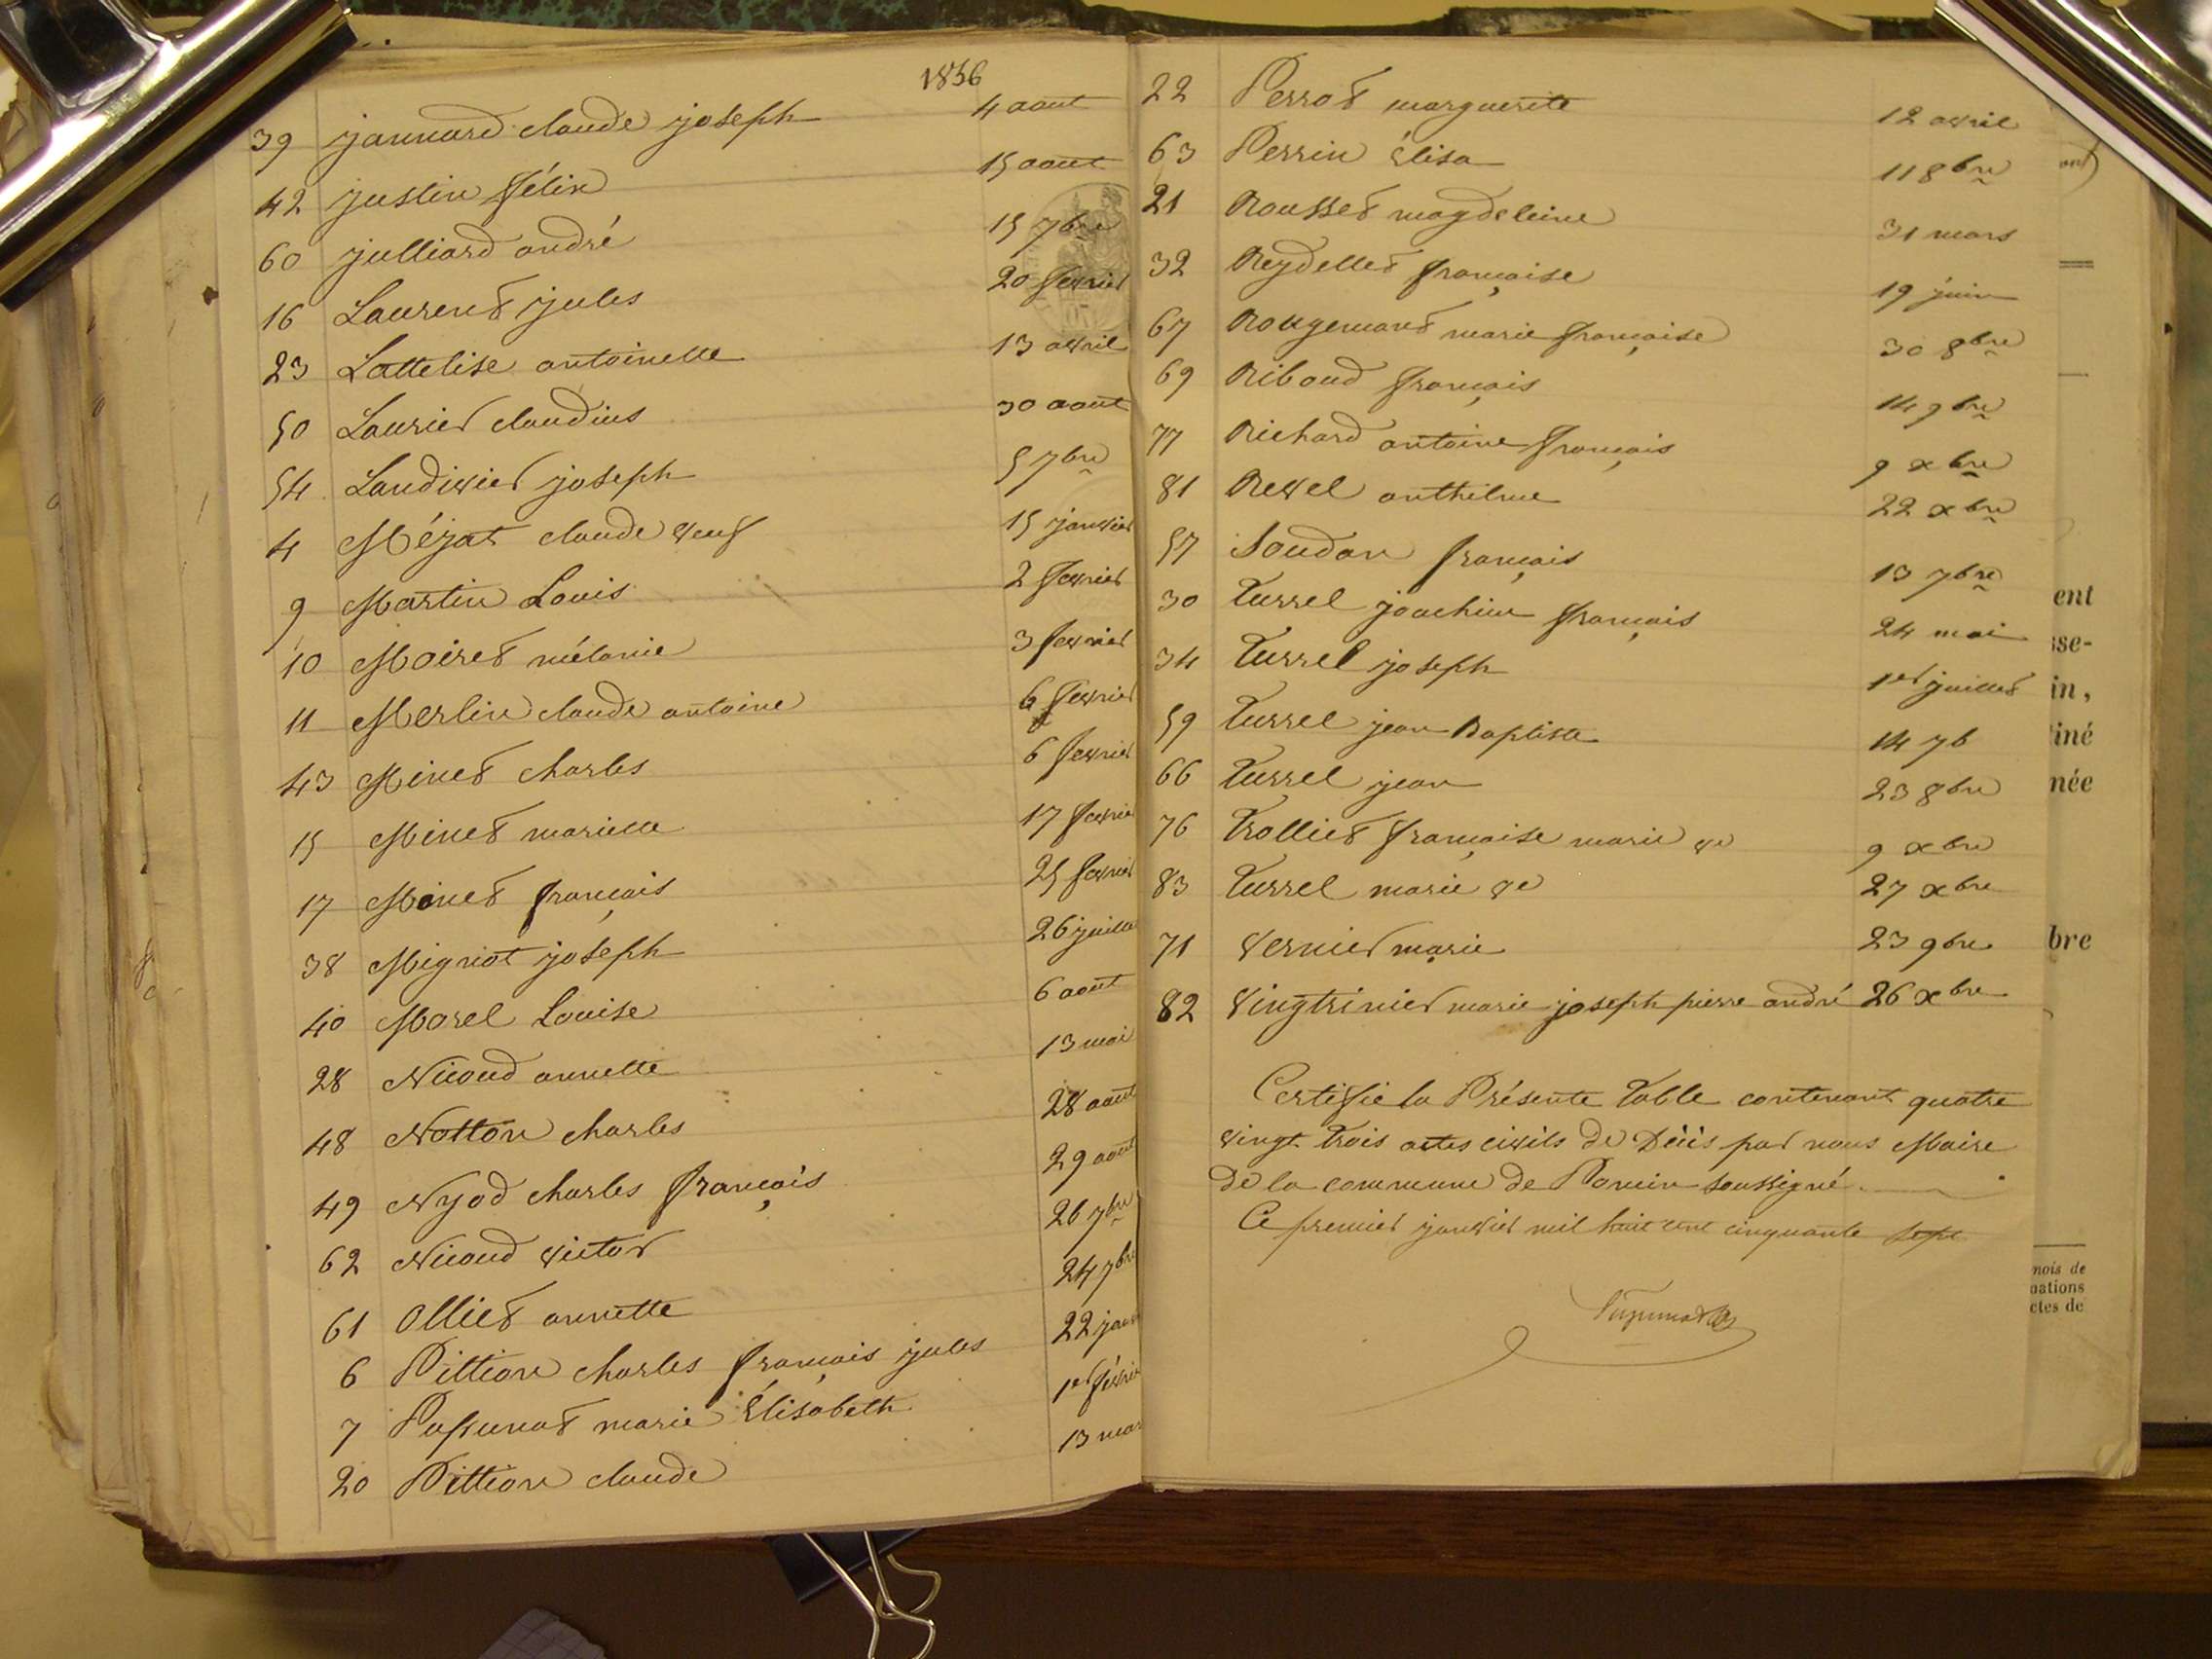 1856
39 jannard claude joseph 4 aout
42 justin félix 15 aout
60 julliard andré 15 7bre
16 Laurent jules 20 fevrier
23 Lattelise antoinette 13 avril
50 Laurier claudius 30 aout
54 Landivier joseph 5 7bre
4 Méjat claude veuf 15 janvier
9 Martin Louis 2 fevrier
10 Moiret mélanie 3 fevrier
11 Merlin claude antoine 6 fevrier
43 Minet charles 6 fevrier
15 Minet mariette 17 fevrie
17 Minet français 25 fevrier
38 Migniot joseph 26 juille
40 Morel Louise 6 aout
28 Nicoud annette 13 mai
48 Notton charles 28 aout
49 Nyod charles français 29 aout
62 Nicoud victor 26 7bre
61 Olliet annette 24 7bre
6 Pittion charles français jules 22 janv
7 marie Élisabeth 1er févrie
20 Pittion claude 13 mar
22 Perrot marguerite 12 avril
63 Perrin élisa 11 8bre
21 Rousset magdeleine 31 mars
32 Reydellet françoise 19 juin
67 Rougemont marie françoise 30 8bre
69 Riboud français 14 9bre
77 Richard antoine français 9 xbre
81 Revel anthelme 22 xbre
57 Soudan français 13 7bre
30 Turrel joachim français 24 mai
34 Turrel joseph 1er juillet
59 Turrel jean Baptiste 14 7b
66 Turrel jean 23 8bre
76 Trolliet françoise marie ve 9 xbre
83 Turrel marie ve 27 xbre
71 Vernier marie 23 9bre
82 Vingtrinier marie joseph pierre andré 26 xbre
Certifie la Présente Table contenant quatre
vingt trois actes civils de Décis par nous Maire
de la commune de soussigné
Ce premier janvier mil huit cent cinquante sept
ent
sse-
in,
iné
née
bre
mois de
nations
ctes de